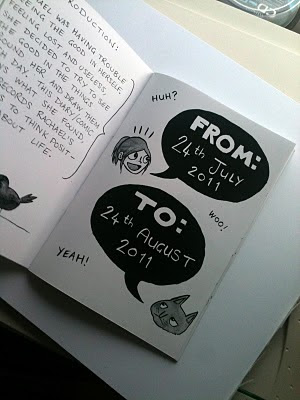 RODUCTION:
WAS HAVING TROUBLE
THE GOOD IN HERSELF.
LOST AND USELESS,
TO TRY TO SEE
GOOD IN THINGS
HER AND DRAW THEM
DAY. THIS DIARY/COMIC
WHAT SHE FOUND
RECORDS RACHAEL'S
TO THINK POSIT-
ABOUT LIFE.
HUH?
FROM:
24th JULY
2011
WOO!
TO:
24th AUGUST
2011
YEAH!